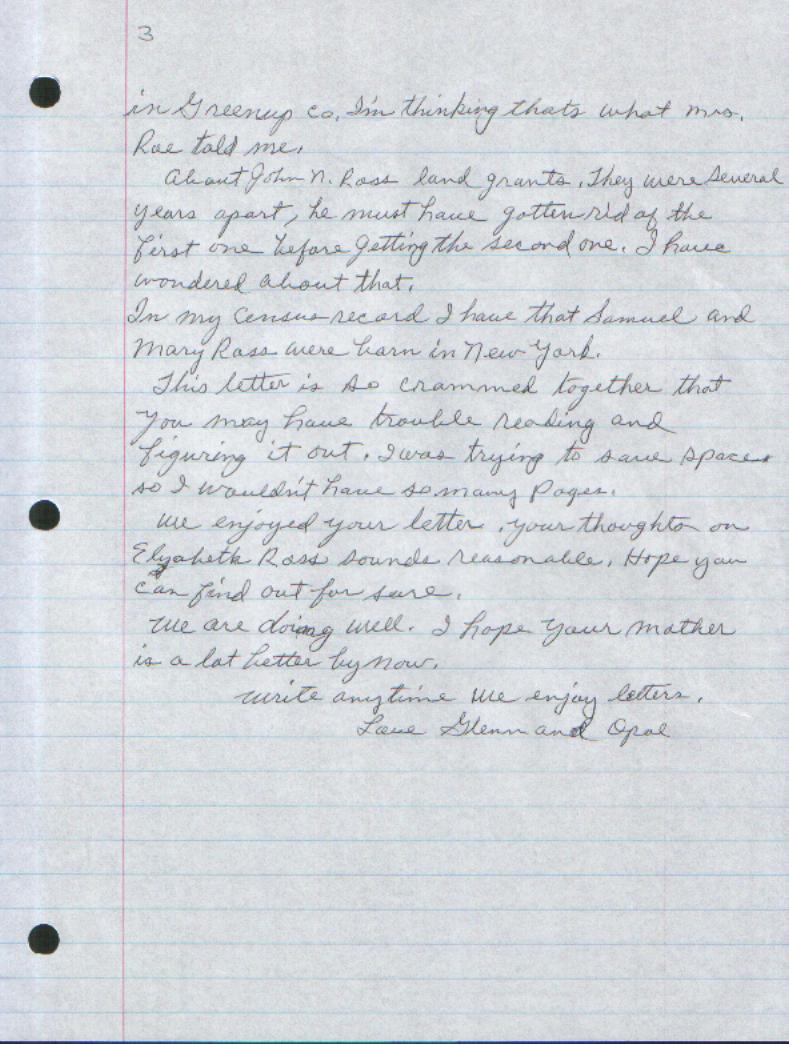 3
in Greenup co. I'm thinking thats what mrs.
Rae told me.
About John N. Ross land grants. They were several
years apart, he must have gotten rid of the
first one before getting the second one. I have
wondered about that.
In my census record I have that Samuel and
Mary Ross were born in New York.
This letter is so crammed together that
you may have trouble reading and
figuring it out. I was trying to save space
so I wouldn't have so many pages.
We enjoyed your letter, your thoughts on
Elizabeth Ross sounds reasonable. Hope you
can find out for sure.
We are doing well. I hope your mother
is a lot better by now.
Write anytime we enjoy letters.
Love Glenn and Opal